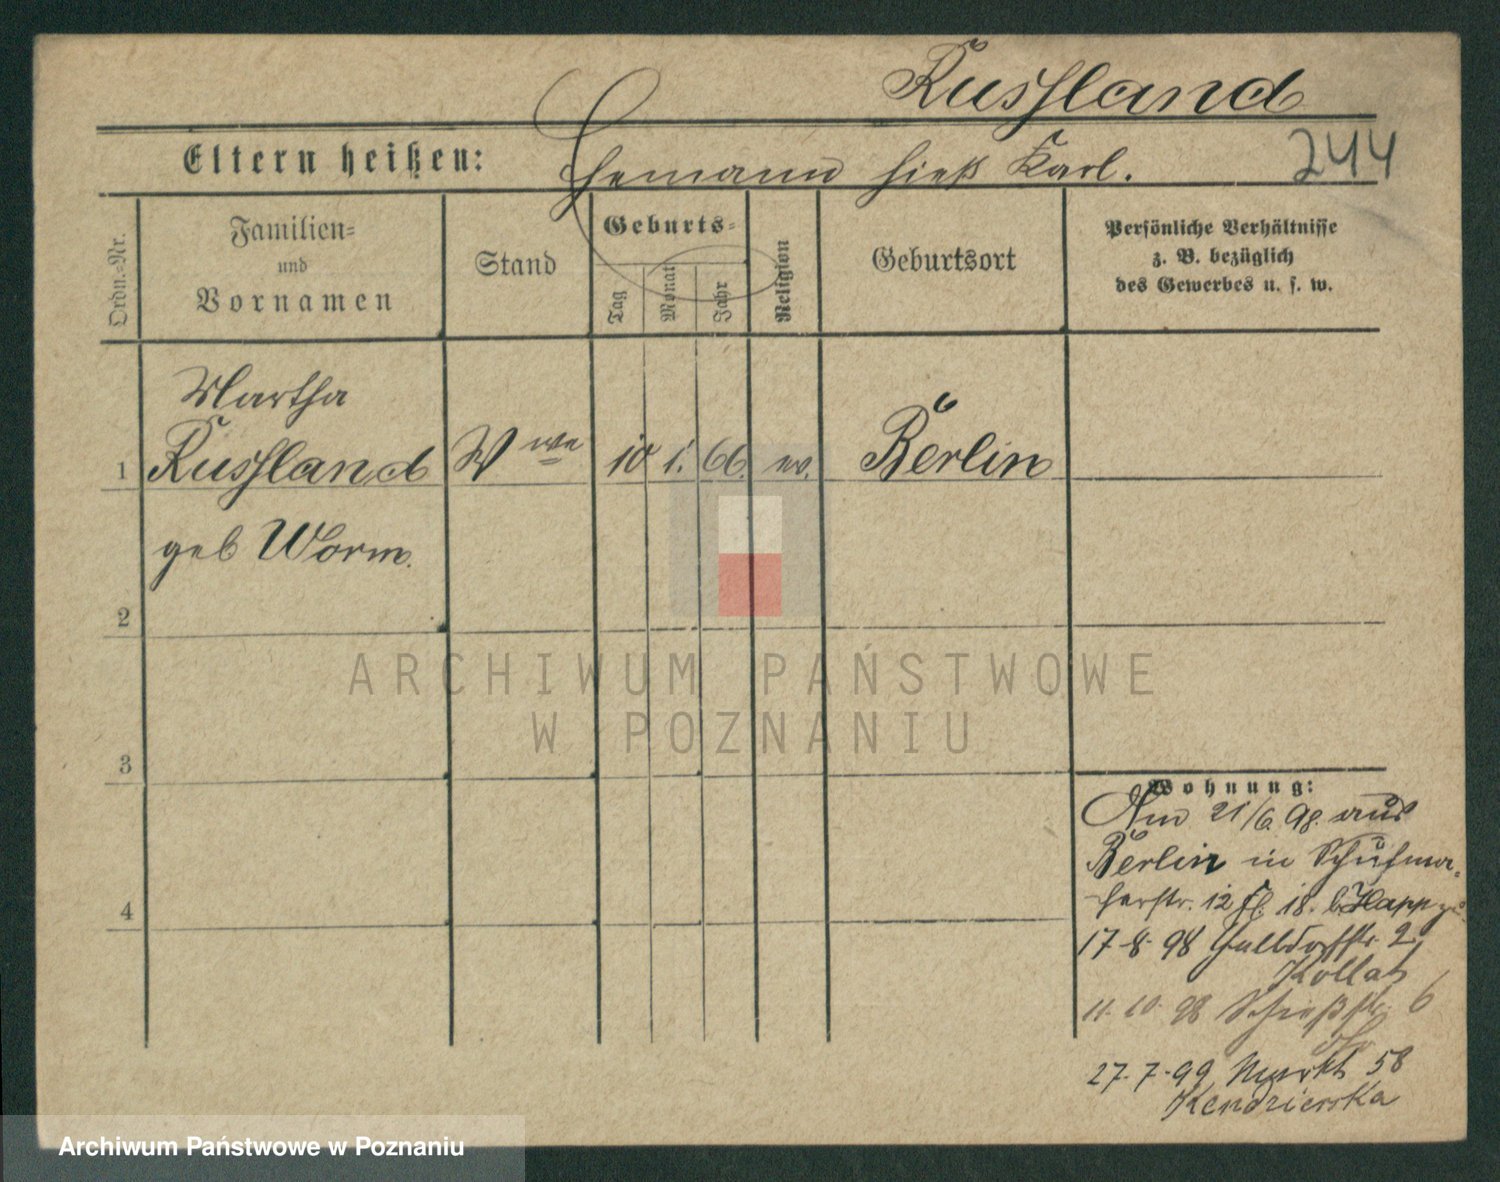 Russland
Eltern heißen: Ehemann hieß Karl. 244
Ordn.-Nr.
Familien-
und
Vornamen
Stand
Geburts-
Tag
Monat
Jahr
Religion
Geburtsort
Persönliche Verhältnisse
z. B. bezüglich
des Gewerbes u. s. w.
Martha
1 Russland Wwe 10 1. 66. ev. Berlin
geb Worm.
2
3
4
Wohnung:
Am 21/6. 98. aus
Berlin in Schuhma-
cherstr. 12 18. b. Happ
17-8-98 2.
Kollat
11-10-98 Schießstr. 6
27-7-99 Markt 58
Kendzierska
ARCHIWUM PAŃSTWOWE
W POZNANIU
Archiwum Państwowe w Poznaniu